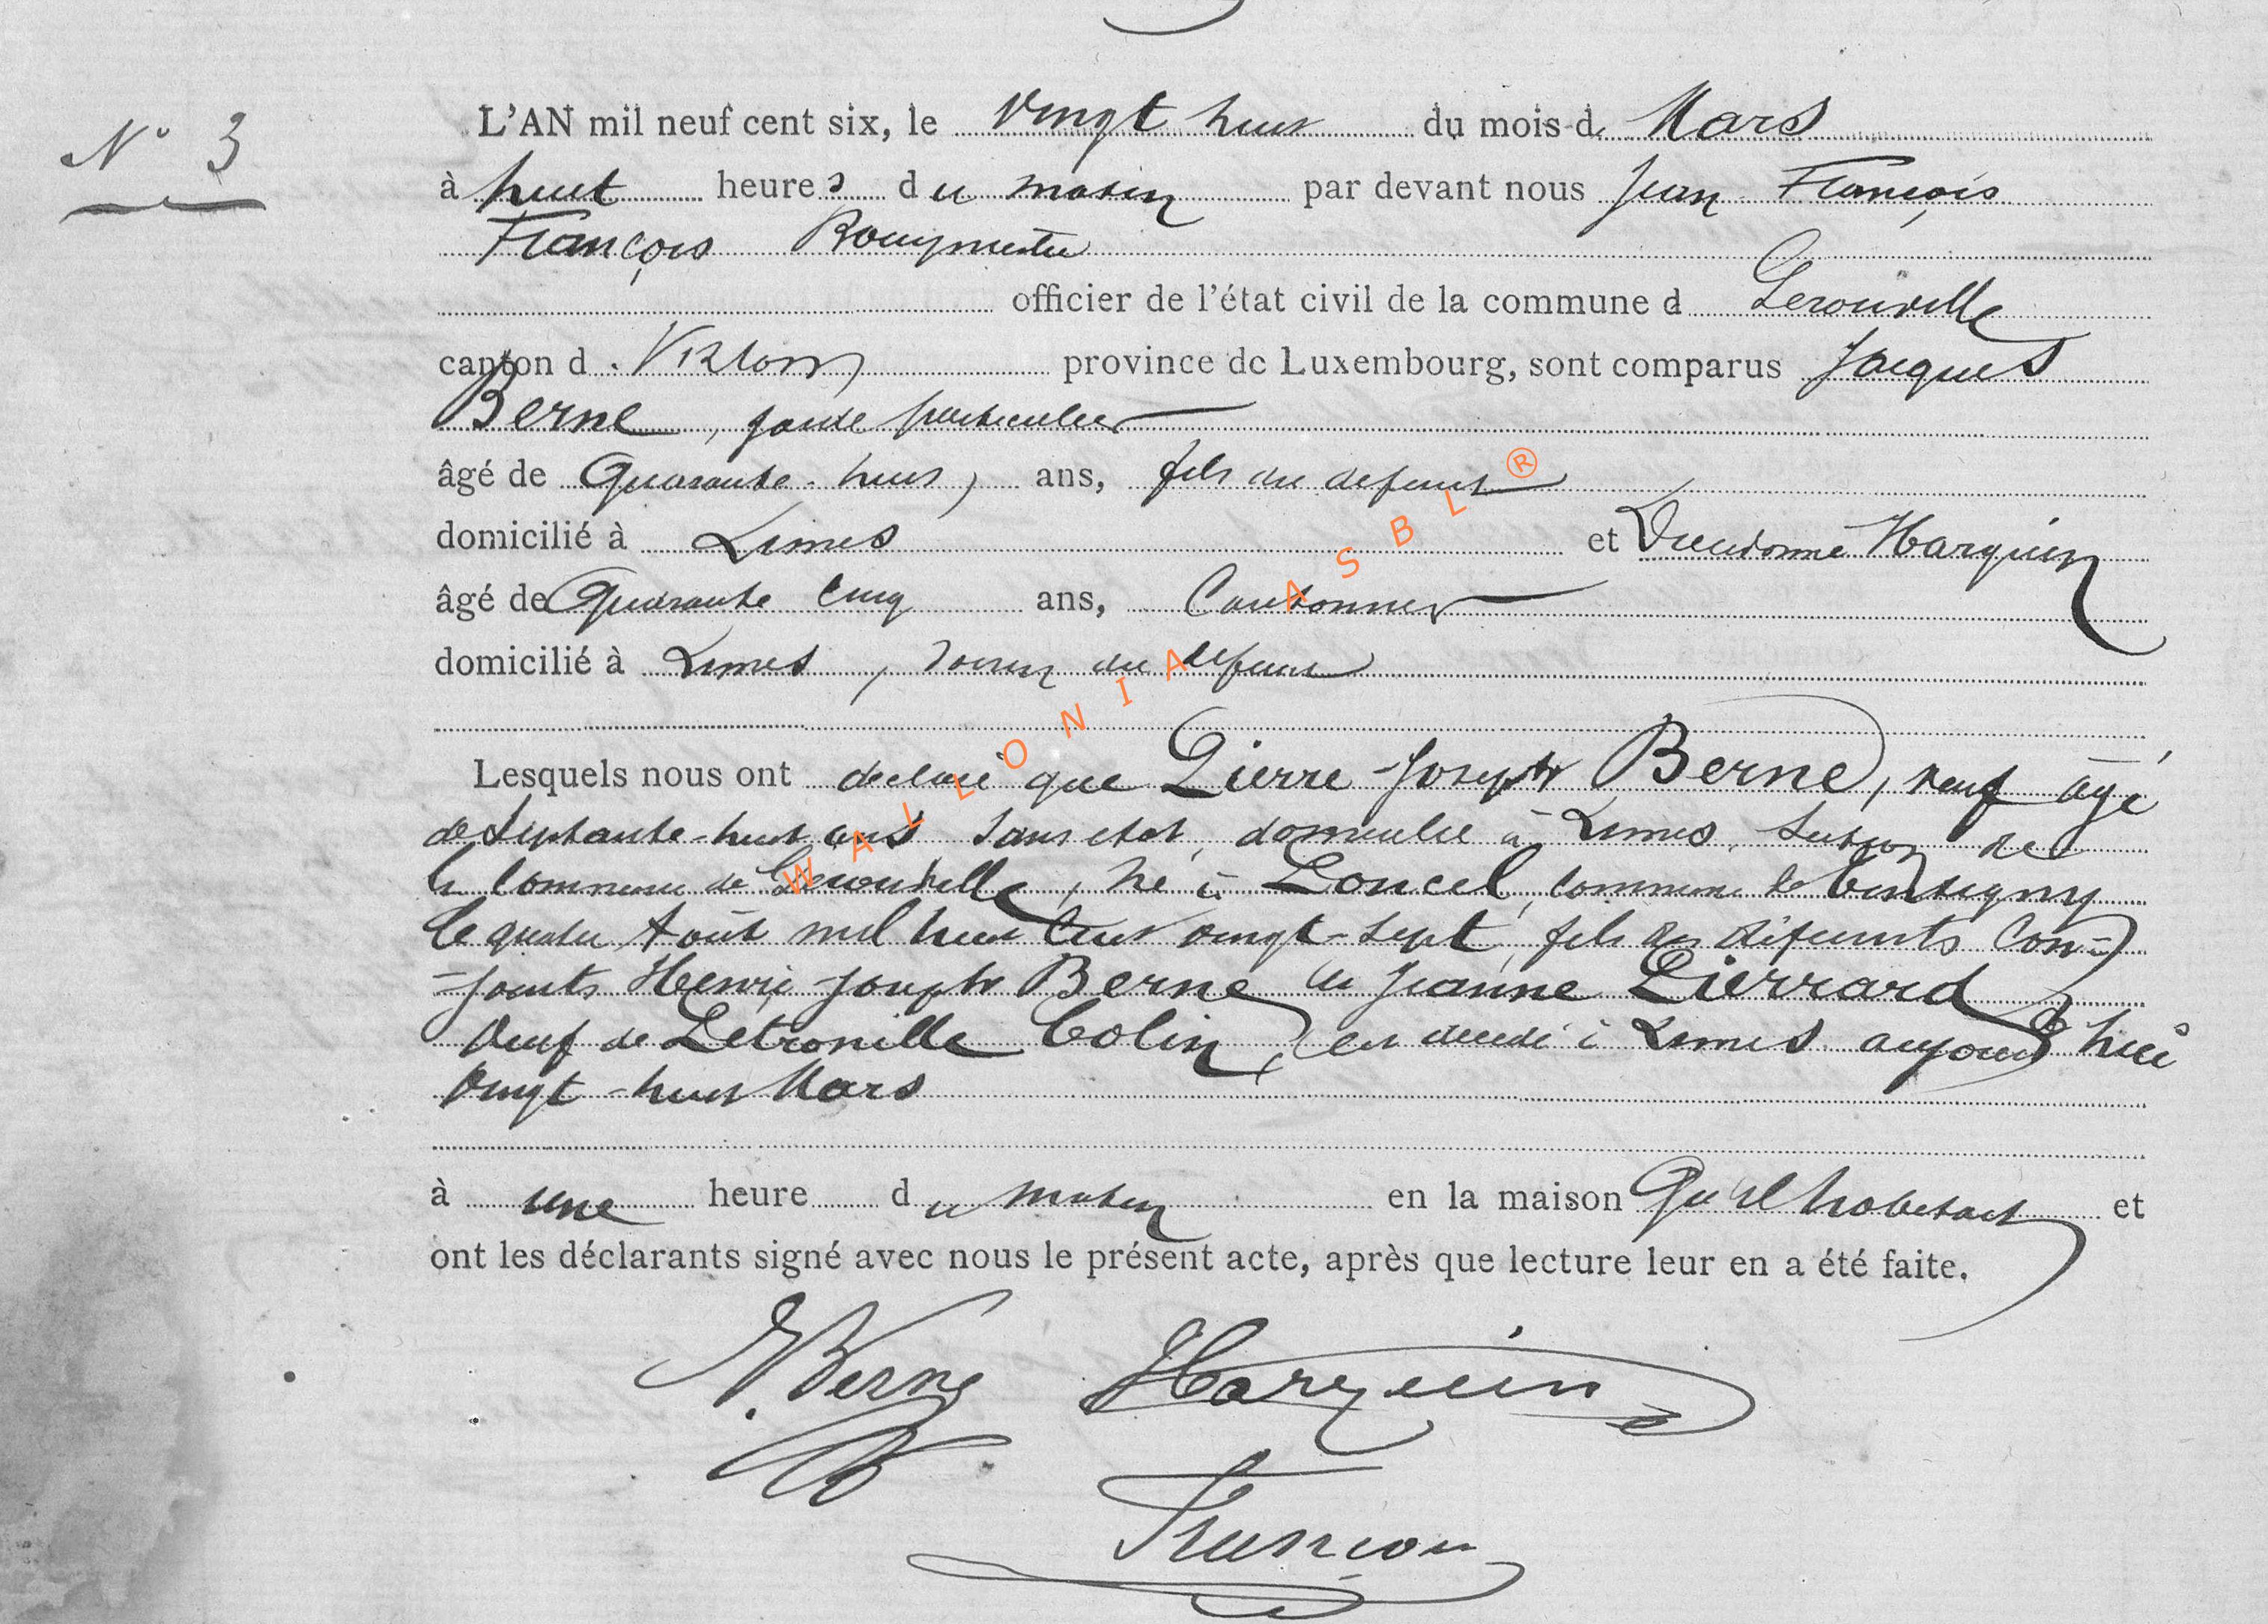 N° 3
L'AN mil neuf cent six, le vingt huit du mois d. Mars
à huit heures du matin par devant nous Jean François
François Bourgmestre
officier de l'état civil de la commune d Gerouville
canton d. Virton province de Luxembourg, sont comparus Jacques
Berne, garde particulier
âgé de Quarante-huit, ans, fils du defunt
domicilié à Limes et Dieudonné Harquin
âgé de Quarante cinq ans, Cantonnier
domicilié à Limes, du defunt
Lesquels nous ont declaré que Pierre-Joseph Berne, veuf âgé
de Septante-huit ans sans etat, domicilié à Limes, section de
la commune de Gerouville, né à commune de
le quatre Août mil huit cent vingt-sept, fils des défunts Con-
-joints Henri Joseph Berne et Jeanne Pierrard
veuf de Petronille Colin, est decedé à Limes aujourd'hui
vingt-huit Mars
à une heure du matin en la maison Qu'il habitait et
ont les déclarants signé avec nous le présent acte, après que lecture leur en a été faite.
J. Berne Harquin
François
WALLONIA ASBL ®